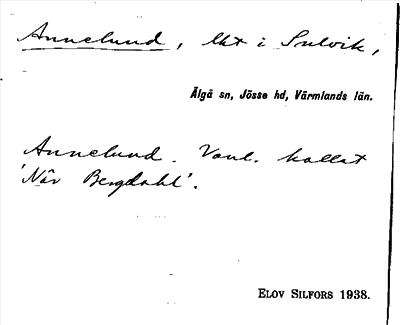 Annelund, lht i Sulvik,
Älgå sn, Jösse hd, Värmlands län.
Annelund. Vanl. kallat
'Når Bergdahl'.
ELOV SILFORS 1938.